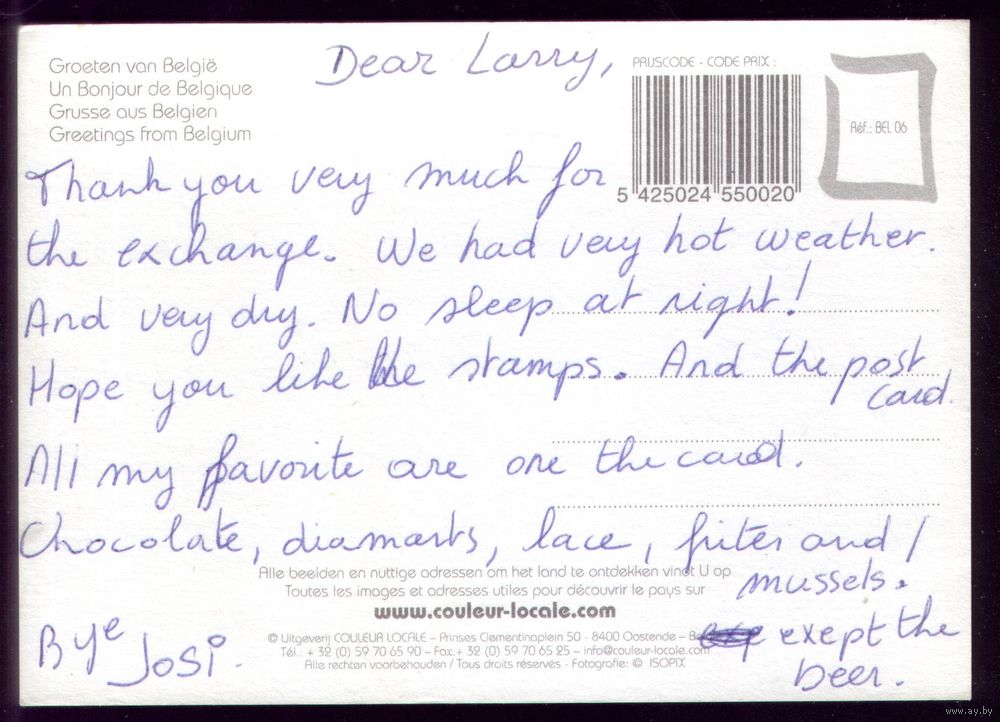 Groeten van België
Un Bonjour de Belgique
Grusse aus Belgien
Greetings from Belgium
PRIJSCODE - CODE PRIX :
5 425024 550020
Réf.: BEL 06
Dear Larry,
Thank you very much for
the exchange. We had very hot weather.
And very dry. No sleep at night!
Hope you like the stamps. And the post
card.
All my favorite are one the card.
Chocolate, diamants, lace, frites and /
mussels.
exept the
beer.
Bye
Josi.
Alle beelden en nuttige adressen om het land te ontdekken vindt U op
Toutes les images et adresses utiles pour découvrir le pays sur
www.couleur-locale.com
© Uitgeverij COULEUR LOCALE – Prinses Clementinaplein 50 - 8400 Oostende –
Tél.: + 32 (0) 59 70 65 90 – Fax + 32 (0) 59 70 65 25 – info@couleur-locale.com
Alle rechten voorbehouden / Tous droits réservés - Fotografie: © ISOPIX
www.ay.by